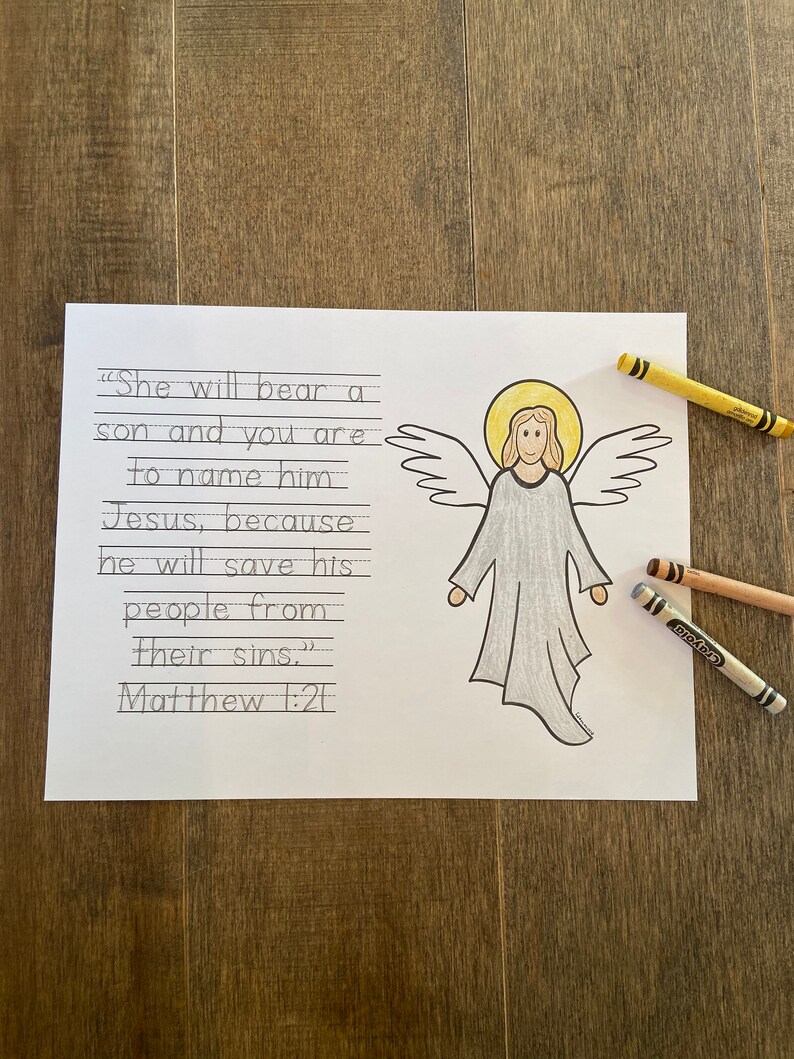 “She will bear a
son and you are
to name him
Jesus, because
he will save his
people from
their sins.”
Matthew 1:21
goldenrod
Crayola